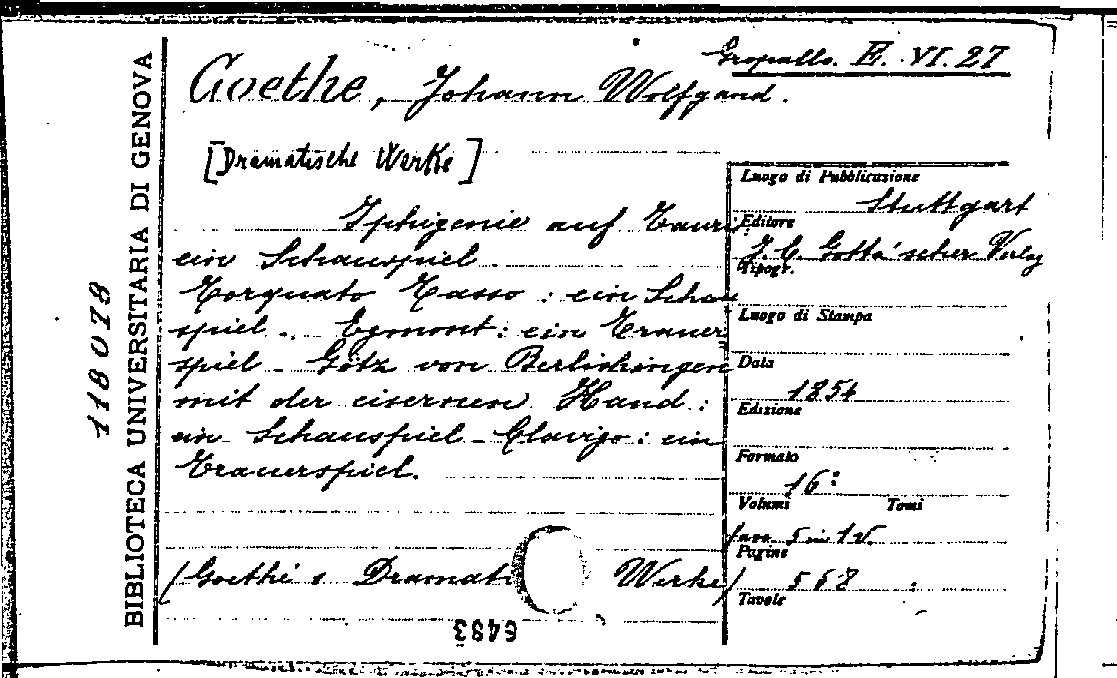 Gropallo. E. VI. 27
Goethe, Johann Wolfgand.
[Dramatische Werke]
Iphigenie auf Tauris
ein Schauspiel
Torquato Tasso : ein Schau
spiel - Egmont : ein Trauer
spiel - Götz von Berlichingen
mit der eisernen Hand :
ein Schauspiel - Clavigo : ein
Trauerspiel.
(Goethe's Dramat Werke)
6483
BIBLIOTECA UNIVERSITARIA DI GENOVA
118078
Luogo di Pubblicazione
Stuttgart
Editore
J. C. Cotta'scher Verlag
Tipogr.
Luogo di Stampa
Data
1854
Edizione
Formato
16°
Volumi Tomi
5 in 1 v.
Pagine
568
Tavole